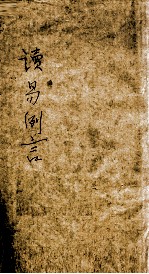 讀易例言